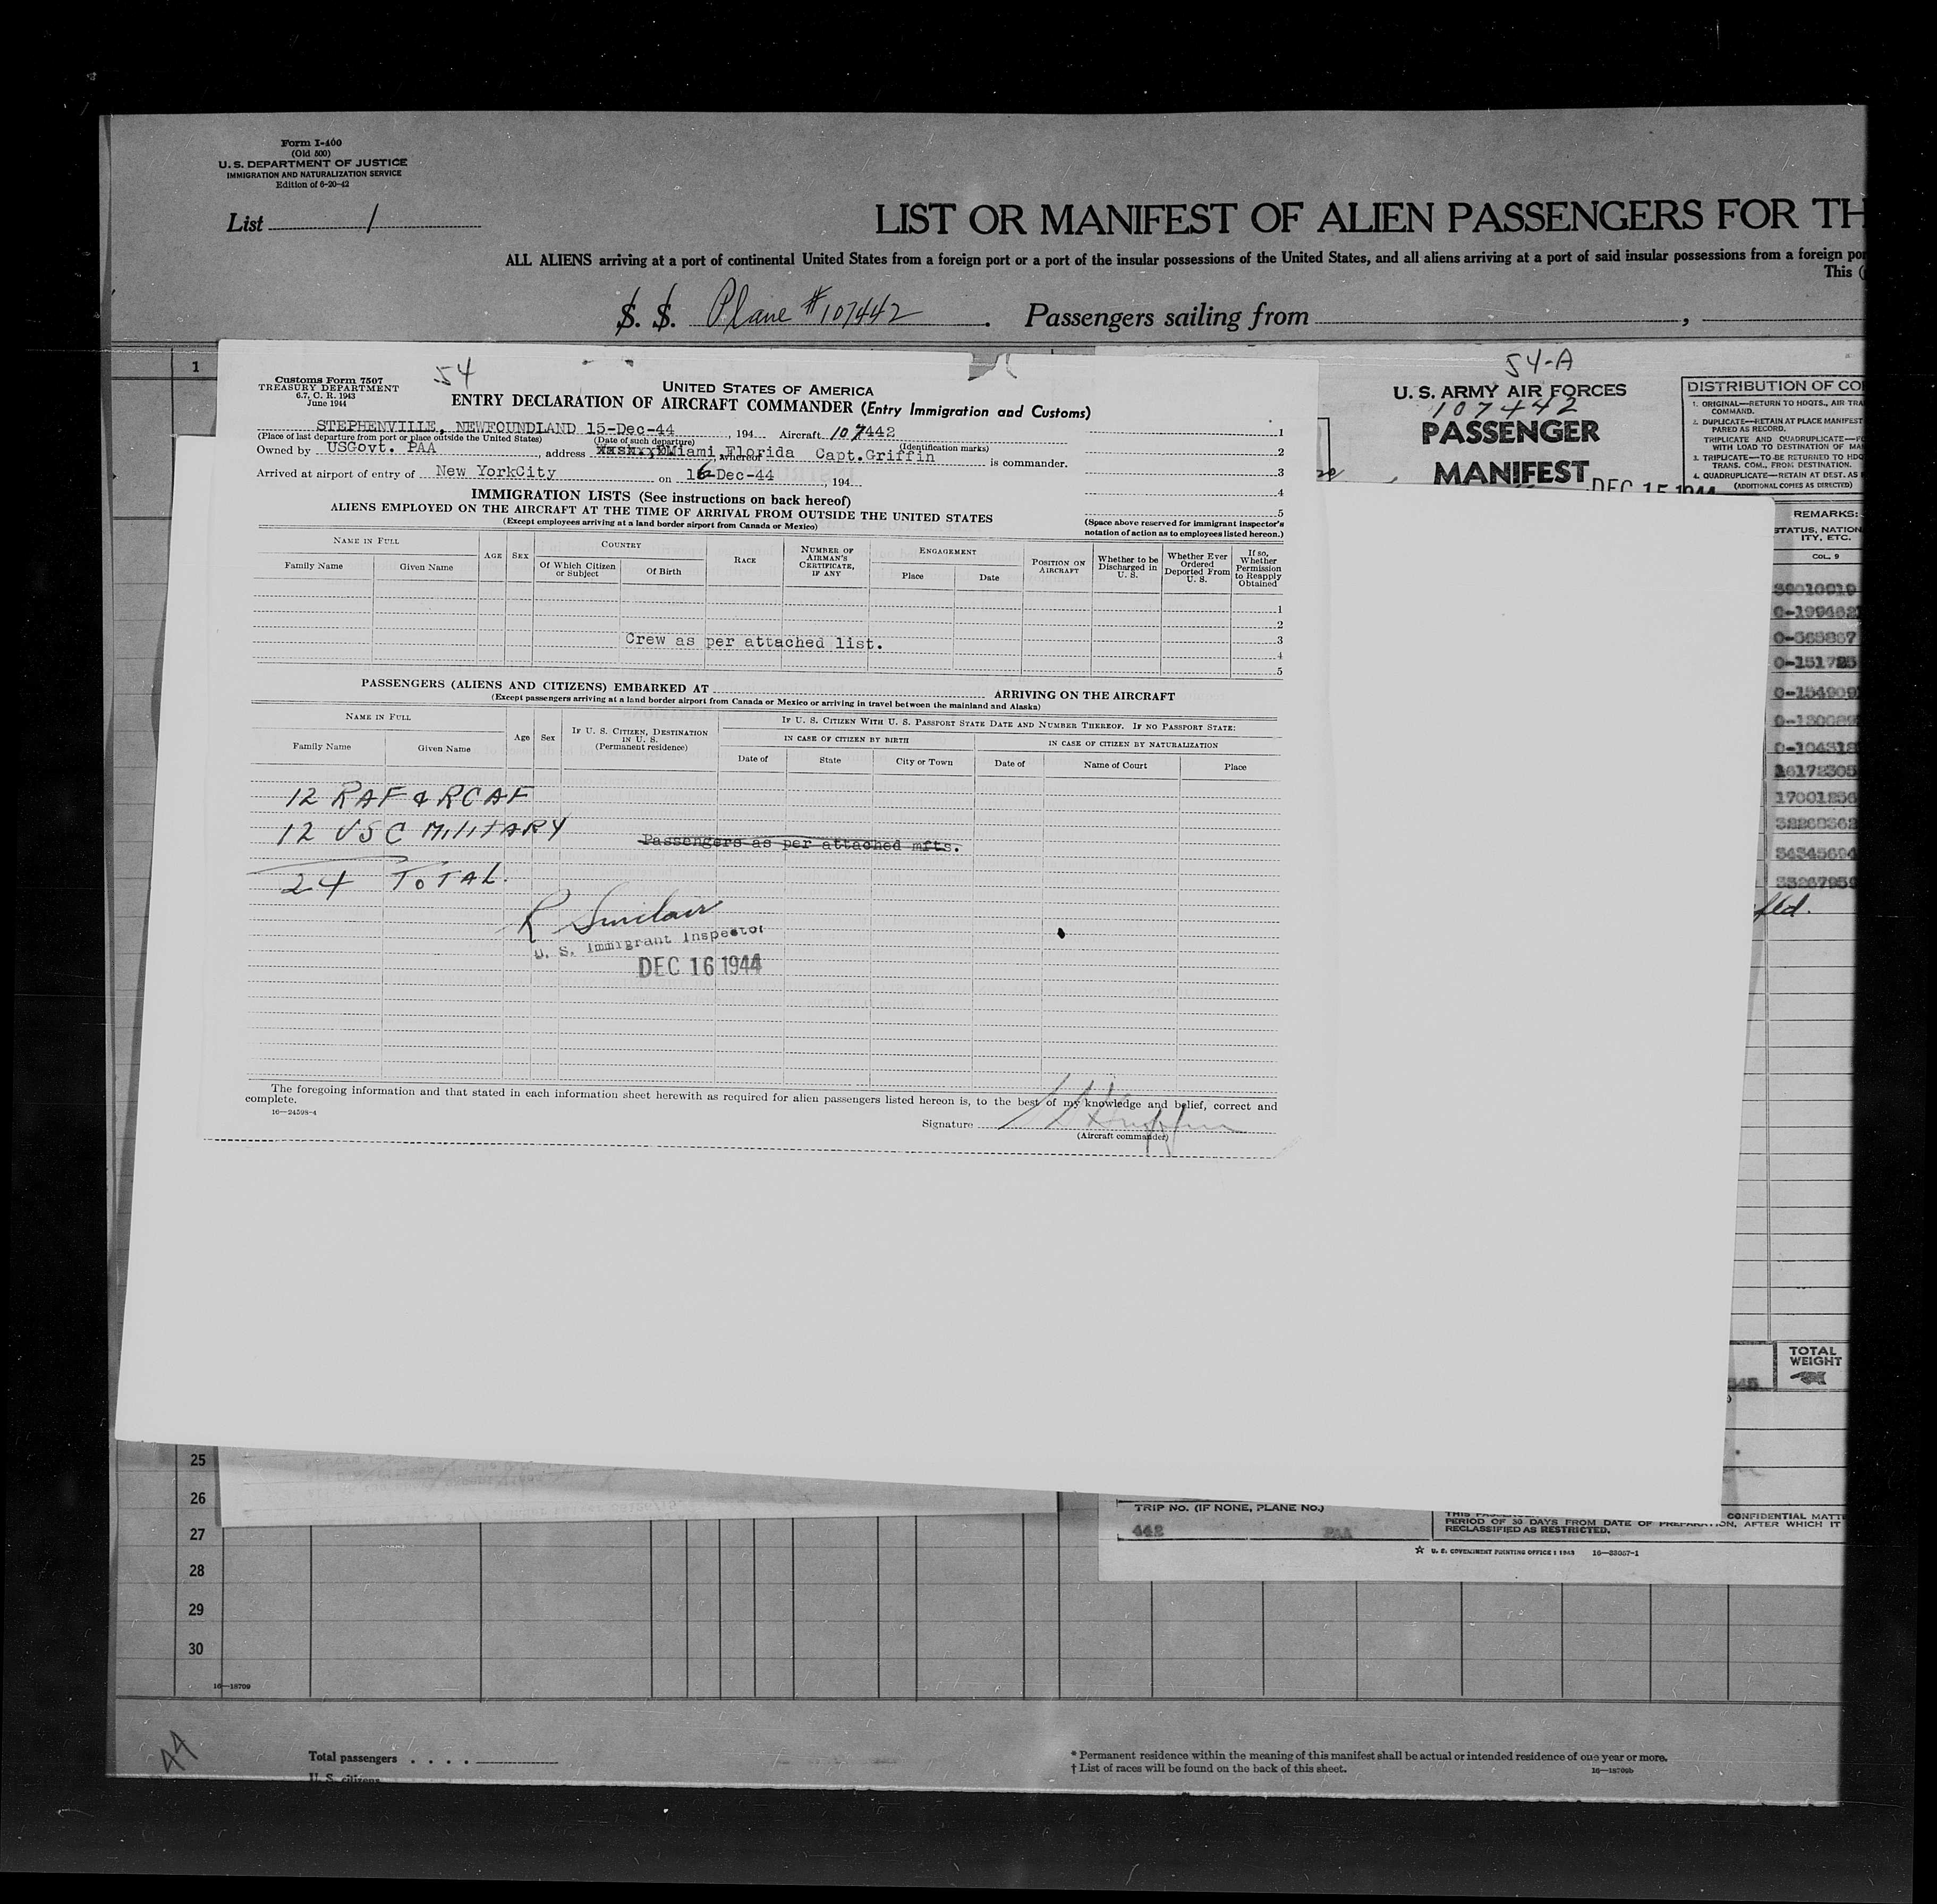 Form I-400
(Old 500)
U. S. DEPARTMENT OF JUSTICE
IMMIGRATION AND NATURALIZATION SERVICE
Edition of 6-20-42
List 1
LIST OR MANIFEST OF ALIEN PASSENGERS FOR TH
ALL ALIENS arriving at a port of continental United States from a foreign port or a port of the insular possessions of the United States, and all aliens arriving at a port of said insular possessions from a foreign por
This (
S. S. Plane #107442. Passengers sailing from ,
1
54
Customs Form 7507
TREASURY DEPARTMENT
6.7, C. R. 1943
June 1944
UNITED STATES OF AMERICA
ENTRY DECLARATION OF AIRCRAFT COMMANDER (Entry Immigration and Customs)
STEPHENVILLE, NEWFOUNDLAND 15-Dec-44, 194 Aircraft 107442
(Place of last departure from port or place outside the United States) (Date of such departure) (Identification marks)
Owned by USGovt. PAA, address Miami, Florida whereof Capt.Griffin is commander.
Arrived at airport of entry of New YorkCity on 16-Dec-44, 194
1
2
3
4
5
(Space above reserved for immigrant inspector's
notation of action as to employees listed hereon.)
IMMIGRATION LISTS (See instructions on back hereof)
ALIENS EMPLOYED ON THE AIRCRAFT AT THE TIME OF ARRIVAL FROM OUTSIDE THE UNITED STATES
(Except employees arriving at a land border airport from Canada or Mexico)
NAME IN FULL
Family Name
Given Name
AGE
SEX
COUNTRY
Of Which Citizen or Subject
Of Birth
RACE
NUMBER OF AIRMAN'S CERTIFICATE, IF ANY
ENGAGEMENT
Place
Date
POSITION ON AIRCRAFT
Whether to be Discharged in U. S.
Whether Ever Ordered Deported From U. S.
If so, Whether Permission to Reapply Obtained
1
2
Crew as per attached list. 3
4
5
PASSENGERS (ALIENS AND CITIZENS) EMBARKED AT ARRIVING ON THE AIRCRAFT
(Except passengers arriving at a land border airport from Canada or Mexico or arriving in travel between the mainland and Alaska)
NAME IN FULL
Family Name
Given Name
Age
Sex
IF U. S. CITIZEN, DESTINATION IN U. S.
(Permanent residence)
IF U. S. CITIZEN WITH U. S. PASSPORT STATE DATE AND NUMBER THEREOF. IF NO PASSPORT STATE:
IN CASE OF CITIZEN BY BIRTH
IN CASE OF CITIZEN BY NATURALIZATION
Date of
State
City or Town
Date of
Name of Court
Place
12 RAF & RCAF
12 USC MILITARY
Passengers as per attached mfts.
24 TOTAL.
R Sinclair
U. S. Immigrant Inspector
DEC 16 1944
The foregoing information and that stated in each information sheet herewith as required for alien passengers listed hereon is, to the best of my knowledge and belief, correct and
complete.
16—24598-4
Signature
(Aircraft commander)
54-A
U. S. ARMY AIR FORCES
107442
PASSENGER
MANIFEST
DEC 15 1944
DISTRIBUTION OF CO
1. ORIGINAL—RETURN TO HDQTS., AIR TRA
COMMAND.
2. DUPLICATE—RETAIN AT PLACE MANIFEST
PARED AS RECORD.
TRIPLICATE AND QUADRUPLICATE—FO
WITH LOAD TO DESTINATION OF MA
3. TRIPLICATE—TO BE RETURNED TO HDQ
TRANS. COM., FROM DESTINATION.
4. QUADRUPLICATE—RETAIN AT DEST. AS
(ADDITIONAL COPIES AS DIRECTED)
REMARKS:
STATUS, NATION
ITY, ETC.
COL. 9
17001256
fld.
TOTAL
WEIGHT
25
26
27
28
29
30
TRIP NO. (IF NONE, PLANE NO.)
442 PAA
CONFIDENTIAL MATT
PERIOD OF 30 DAYS FROM DATE OF PREPARATION, AFTER WHICH IT
RECLASSIFIED AS RESTRICTED.
U. S. GOVERNMENT PRINTING OFFICE : 1943 16—33057-1
16—18709
44
Total passengers . . . .
U. S. citizens
* Permanent residence within the meaning of this manifest shall be actual or intended residence of one year or more.
† List of races will be found on the back of this sheet.
16—18709b